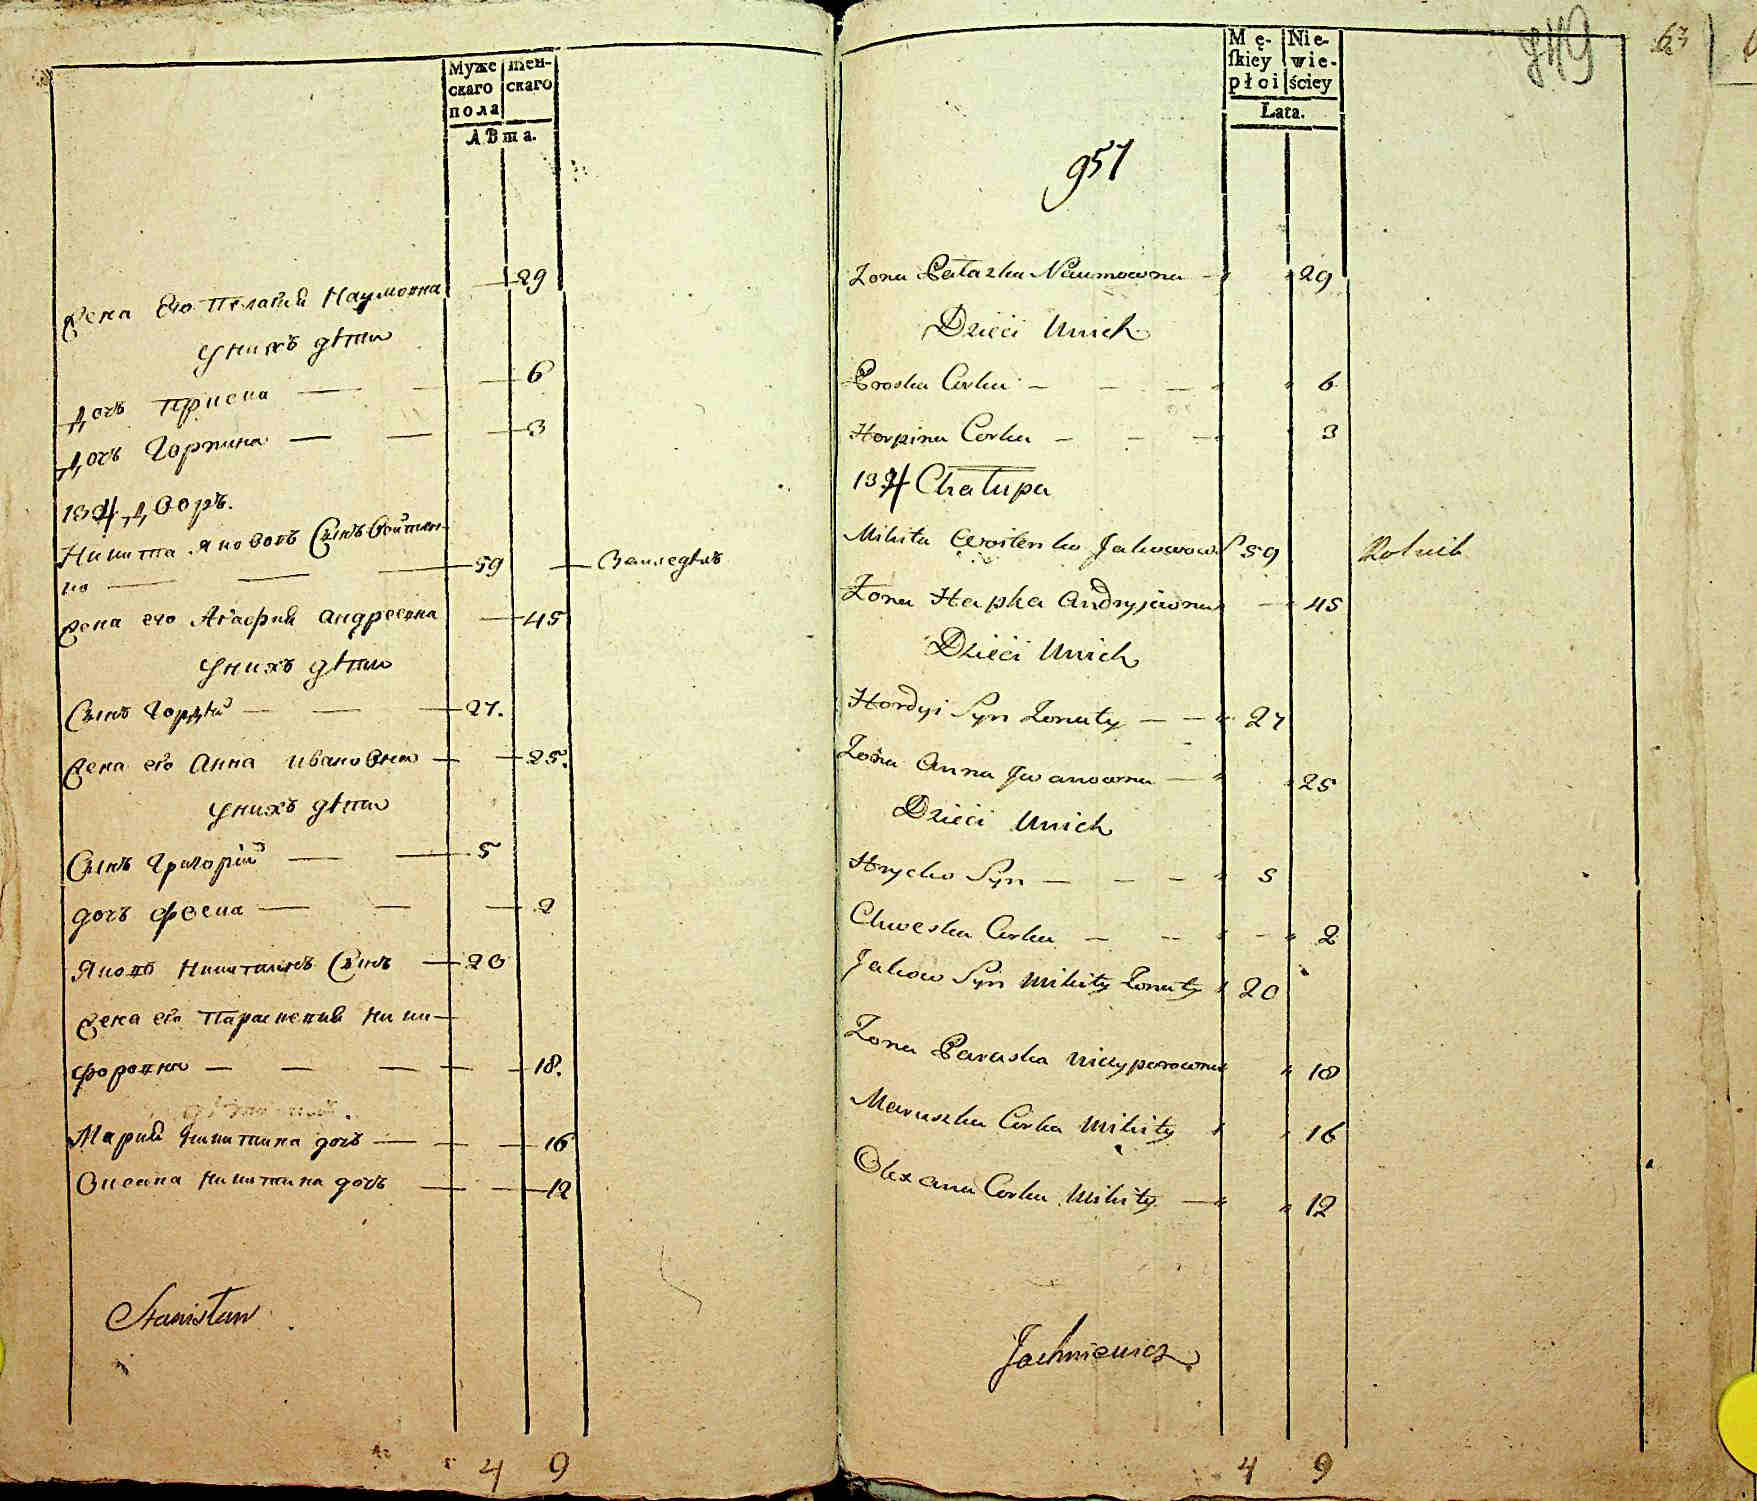 Муже
скаго
пола
жен-
скаго
Лѣта.
Жена Его Пелагия Наумовна — 29
У нихъ дѣти
Дочь Приска — — — 6
Дочь Горпина — — — 3
134 Дворъ.
Никита Якововъ Сынъ Войтен-
ко — — — 59 — Земледѣлъ
Жена его Агафия Андреевна — 45
У нихъ дѣти
Сынъ Гордѣй — — — 27.
Жена его Анна Ивановна — — 25.
У нихъ дѣти
Сынъ Григорій — — 5
дочь Феска — — — 2
Яковъ Никитинъ Сынъ — 20
Жена его Параскевия Ники-
форовна — — — — 18.
Мария Никитина дочь — — — 16
Оксана Никитина дочь — — — 12
Stanisław
4 9
Mę-
ſkiey
płci
Nie-
wie-
ściey
Lata.
63
951
Zona Pałazka Naumowna — " 29
Dzieci Unich
Proska Corka — — — " " 6
Horpina Corka — — — " 3
134 Chałupa
Mikita Woitenko Jakowow S 59 Rolnik
Zona Hapka Andryiowna — " 45
Dzieci Unich
Hordyi Syn Zonaty — — " 27
Zona Anna Jwanowna — " " 25
Dzieci Unich
Hrycko Syn — — — " 5
Chweska Corka — — " — " 2
Jakow Syn Mikity Zonaty " 20
Zona Paraska Nicyporowna " 18
Maruszka Corka Mikity " " 16
Olexana Corka Mikity — " " 12
Jachniewicz
4 9